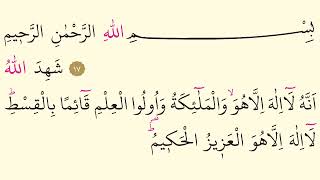 بِسْمِ اللّٰهِ الرَّحْمٰنِ الرَّحٖيمِ
١٧ شَهِدَ اللّٰهُ
اَنَّهُ لَٓا اِلٰهَ اِلَّاهُوَۙ وَالْمَلٰٓئِكَةُ وَاُولُوا الْعِلْمِ قَٓائِمًا بِالْقِسْطِؕ
لَٓا اِلٰهَ اِلَّاهُوَ الْعَزٖيزُ الْحَكٖيمُؕ